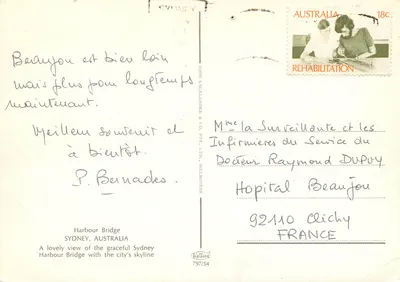 Beaujon est bien loin
mais plus pour longtemps
maintenant.
Meilleur souvenir et
à bientôt.
P. Bernades.
Harbour Bridge
SYDNEY, AUSTRALIA
A lovely view of the graceful Sydney
Harbour Bridge with the city's skyline
AUSTRALIA
18c
REHABILITATION
Mme la Surveillante et les
Infirmieres du Service du
Docteur Raymond DUPUY
Hopital Beaujon
92110 Clichy
FRANCE